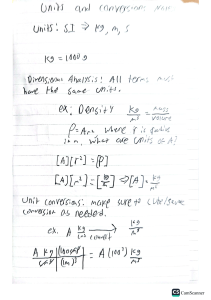 Units and conversions
Units: SI ⇒ kg, m, s
kg = 1000 g
Dimensional Analysis: All terms must
have the same units.
ex: Density kg/m³ = mass/volume
ρ = Ar², where r is radius
in m, what are units of A?
[A][r²] = [ρ]
[A][m²] = [kg/m³] ⇒ [A] =
Unit conversions: make sure to cube/square
conversion as needed.
ex. A kg/cm³ convert → kg/m³
= A(100³) kg/m³
CS CamScanner